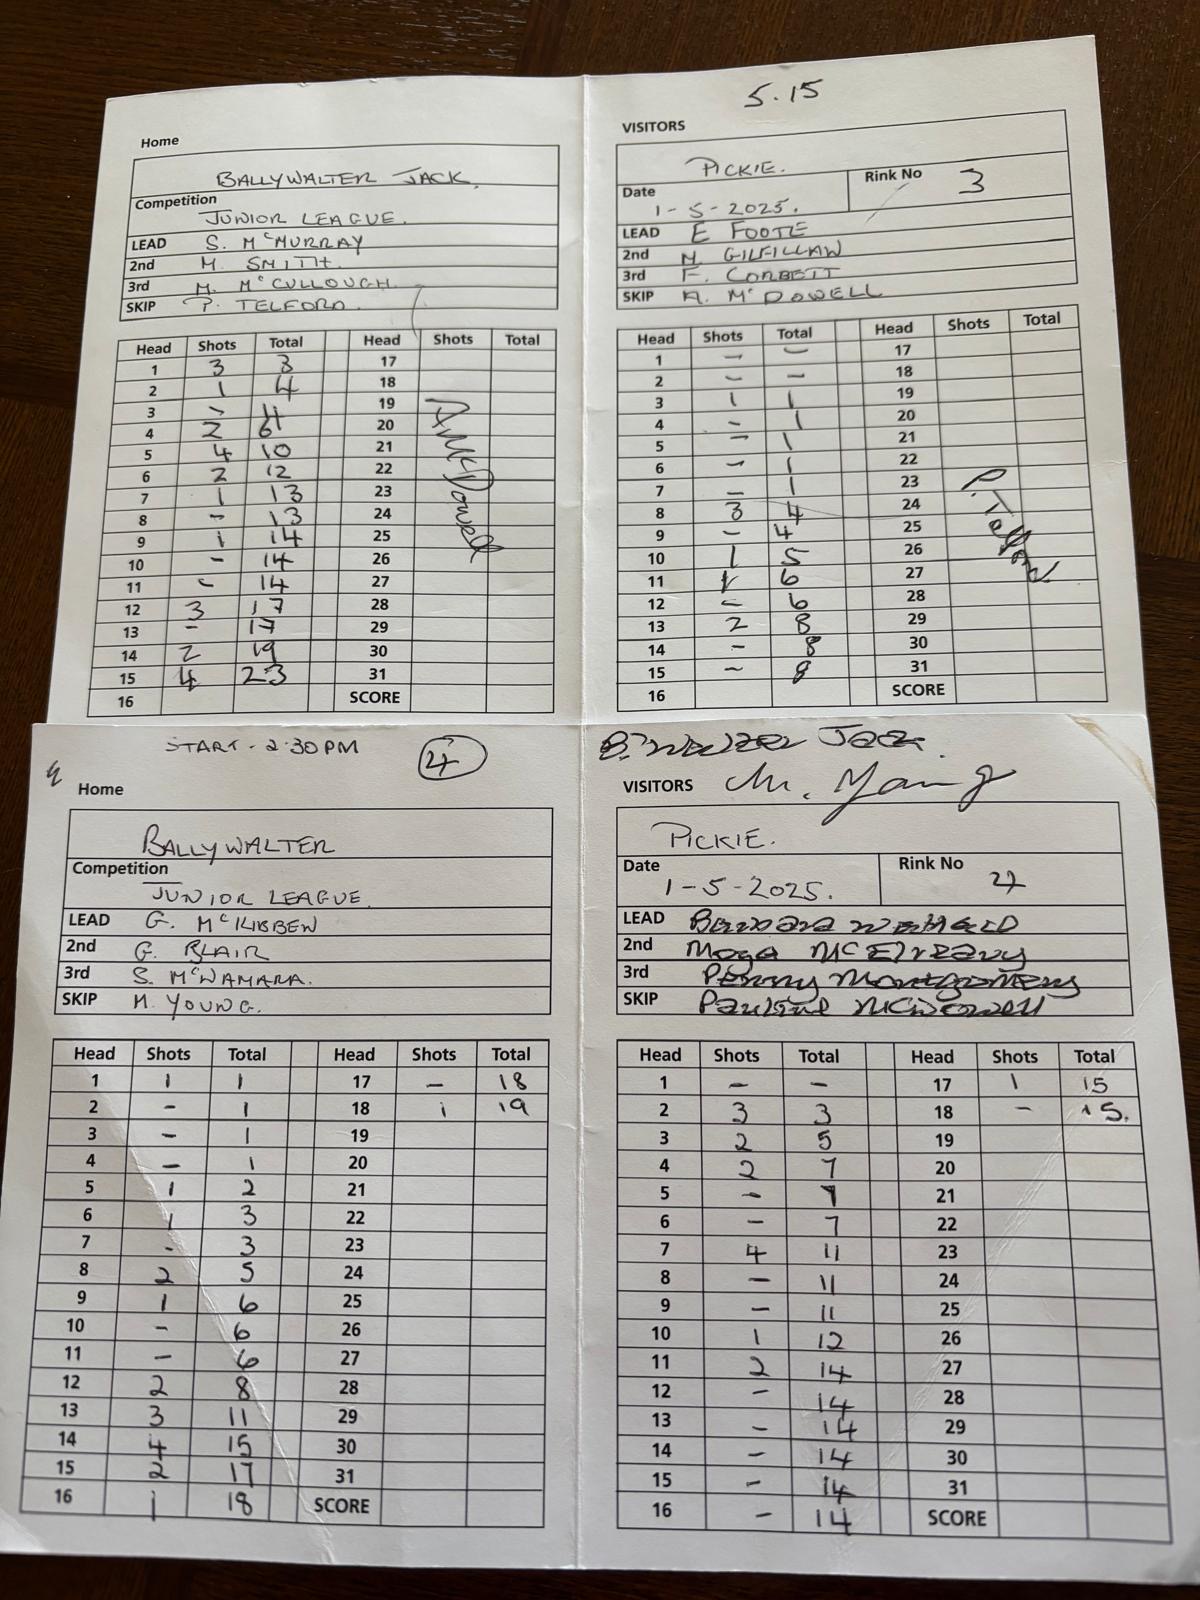 5.15
Home
BALLYWALTER JACK.
Competition
JUNIOR LEAGUE.
LEAD S. McMURRAY
2nd M. SMITH.
3rd M. McCULLOUGH.
SKIP P. TELFORD.
Head Shots Total Head Shots Total
1 3 3 17
2 1 4 18
3 - 4 19
4 2 6 20
5 4 10 21
6 2 12 22
7 1 13 23
8 - 13 24
9 1 14 25
10 - 14 26
11 - 14 27
12 3 17 28
13 - 17 29
14 2 19 30
15 4 23 31
16 SCORE
A McDowell
VISITORS
PICKIE.
Date Rink No 3
1-5-2025.
LEAD E FOOTE
2nd M. GILFILLAN
3rd F. CORBETT
SKIP A. McDOWELL
Head Shots Total Head Shots Total
1 - - 17
2 - - 18
3 1 1 19
4 - 1 20
5 - 1 21
6 - 1 22
7 - 1 23
8 3 4 24
9 - 4 25
10 1 5 26
11 1 6 27
12 - 6 28
13 2 8 29
14 - 8 30
15 - 8 31
16 SCORE
P. Telford
START - 2.30PM
4
Home
BALLYWALTER
Competition
JUNIOR LEAGUE.
LEAD G. McKIBBEN
2nd G. BLAIR
3rd S. McNAMARA.
SKIP M. YOUNG.
Head Shots Total Head Shots Total
1 1 1 17 - 18
2 - 1 18 1 19
3 - 1 19
4 - 1 20
5 1 2 21
6 1 3 22
7 - 3 23
8 2 5 24
9 1 6 25
10 - 6 26
11 - 6 27
12 2 8 28
13 3 11 29
14 4 15 30
15 2 17 31
16 1 18 SCORE
Jack.
VISITORS M. Young
PICKIE.
Date Rink No 4
1-5-2025.
LEAD Barbara
2nd McElreavy
3rd Penny Montgomery
SKIP Pauline McDowell
Head Shots Total Head Shots Total
1 - - 17 1 15
2 3 3 18 - 15.
3 2 5 19
4 2 7 20
5 - 7 21
6 - 7 22
7 4 11 23
8 - 11 24
9 - 11 25
10 1 12 26
11 2 14 27
12 - 14 28
13 - 14 29
14 - 14 30
15 - 14 31
16 - 14 SCORE